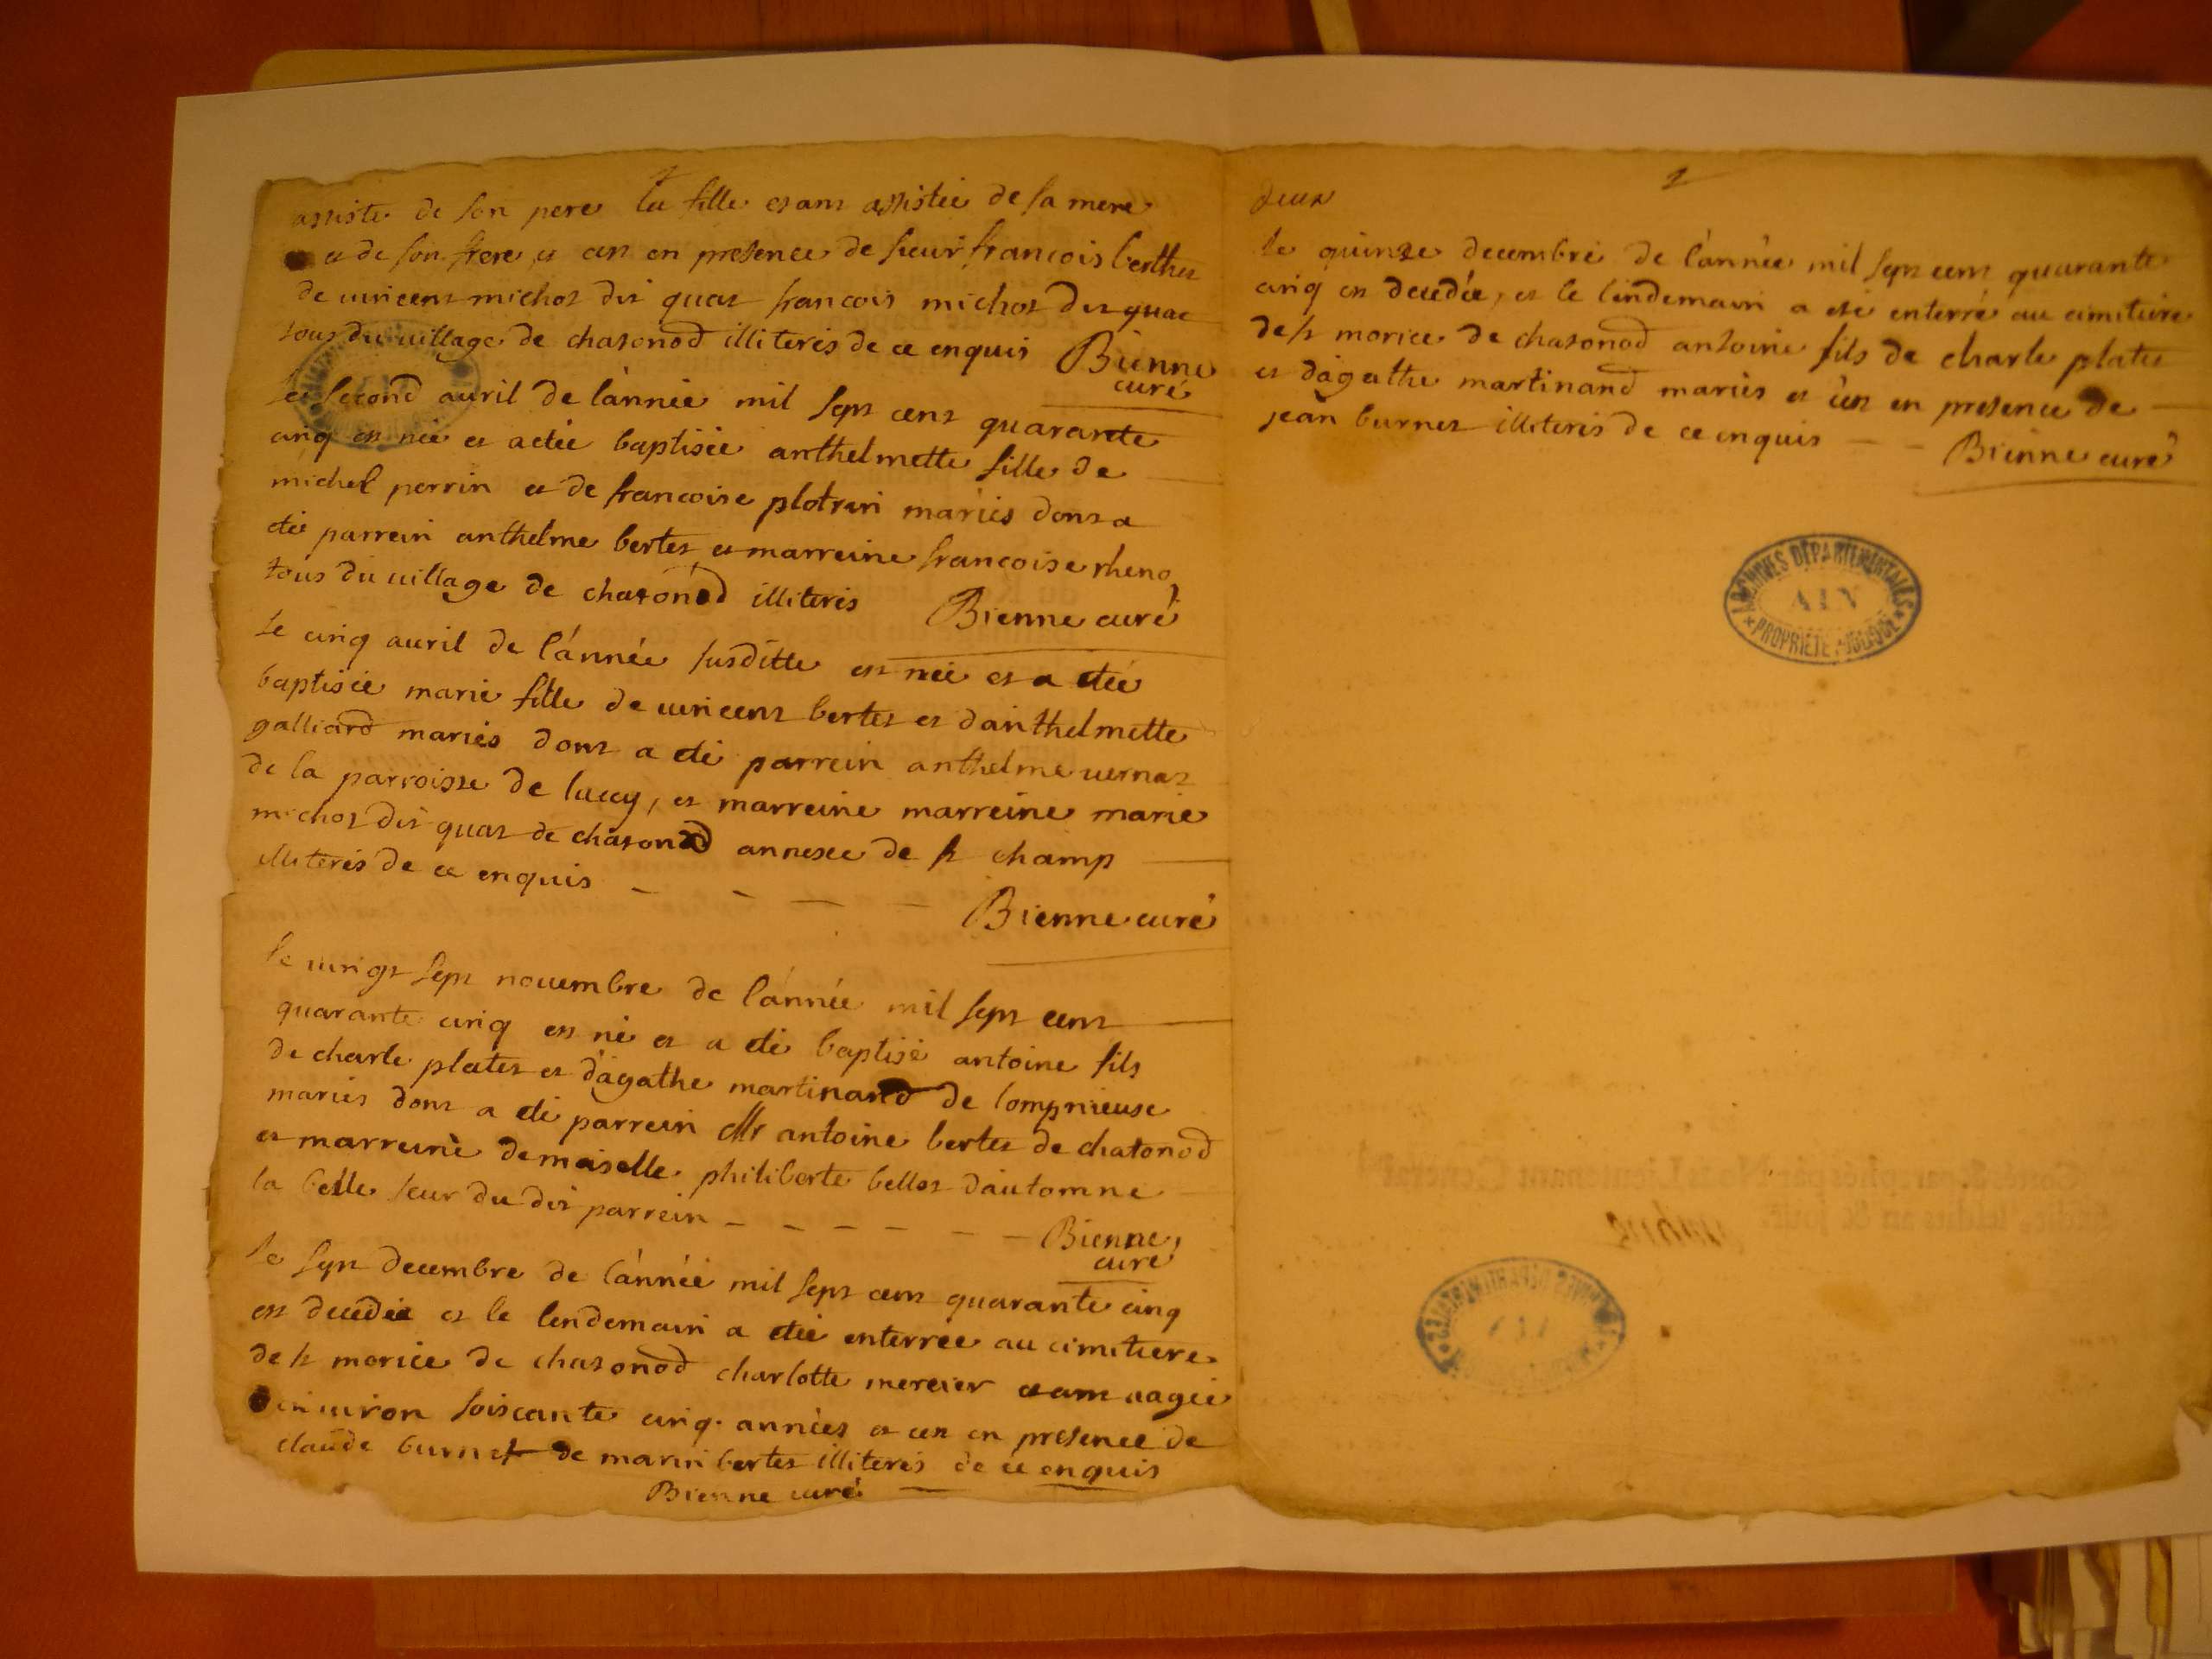 assiste de son pere la fille etant assistée de sa mere
et de son frere et cet en presence de sieur francois berthet
de uincent michot dit quat francois michot dit quat
tous du uillage de chatonod illiterés de ce enquis Bienne
curé
le second auril de lánnée mil sept cent quarante
cinq est née et aetée baptisée anthelmette fille de
michel perrin et de francoise plotrin mariés dont a
eté parrein anthelme bertet et marreine francoise rheno
tous du uillage de chatonod illiterés Bienne curé
le cinq auril de lánnée susditte est née et a etée
baptisée marie fille de uincent bertet et danthelmette
galliard mariés dont a eté parrein anthelme uernat
de la parroisse de lucey, et marreine marreine marie
michot dit quat de chatonod annexe de st champ
illiterés de ce enquis
Bienne curé
le uingt sept nouembre de lánnée mil sept cent
quarante cinq est né et a eté baptisé antoine fils
de charle platet et dágathe martinand de lompnieuse
mariés dont a eté parrein Mr antoine bertet de chatonod
et marreine demoiselle philiberte bellot dautomne
la belle seur du dit parrein Bienne
curé
le sept decembre de lánnée mil sept cent quarante cinq
est decedée et le lendemain a etée enterrée au cimitiere
de st morice de chatonod charlotte mercier etant aagée
denuiron soiscante cinq années et cet en presence de
claude burnet de marin bertet illiterés de ce enquis
Bienne curé
2
deux
le quinze decembre de lánnée mil sept cent quarante
cinq est decedée, et le lindemain a eté enterré au cimitiere
de st morice de chatonod antoine fils de charle platet
et dágathe martinand mariés et cet en presence de
jean burnet illiterés de ce enquis Bienne curé
ARCHIVES DÉPARTEMENTALES
AIN
PROPRIÉTÉ PUBLIQUE